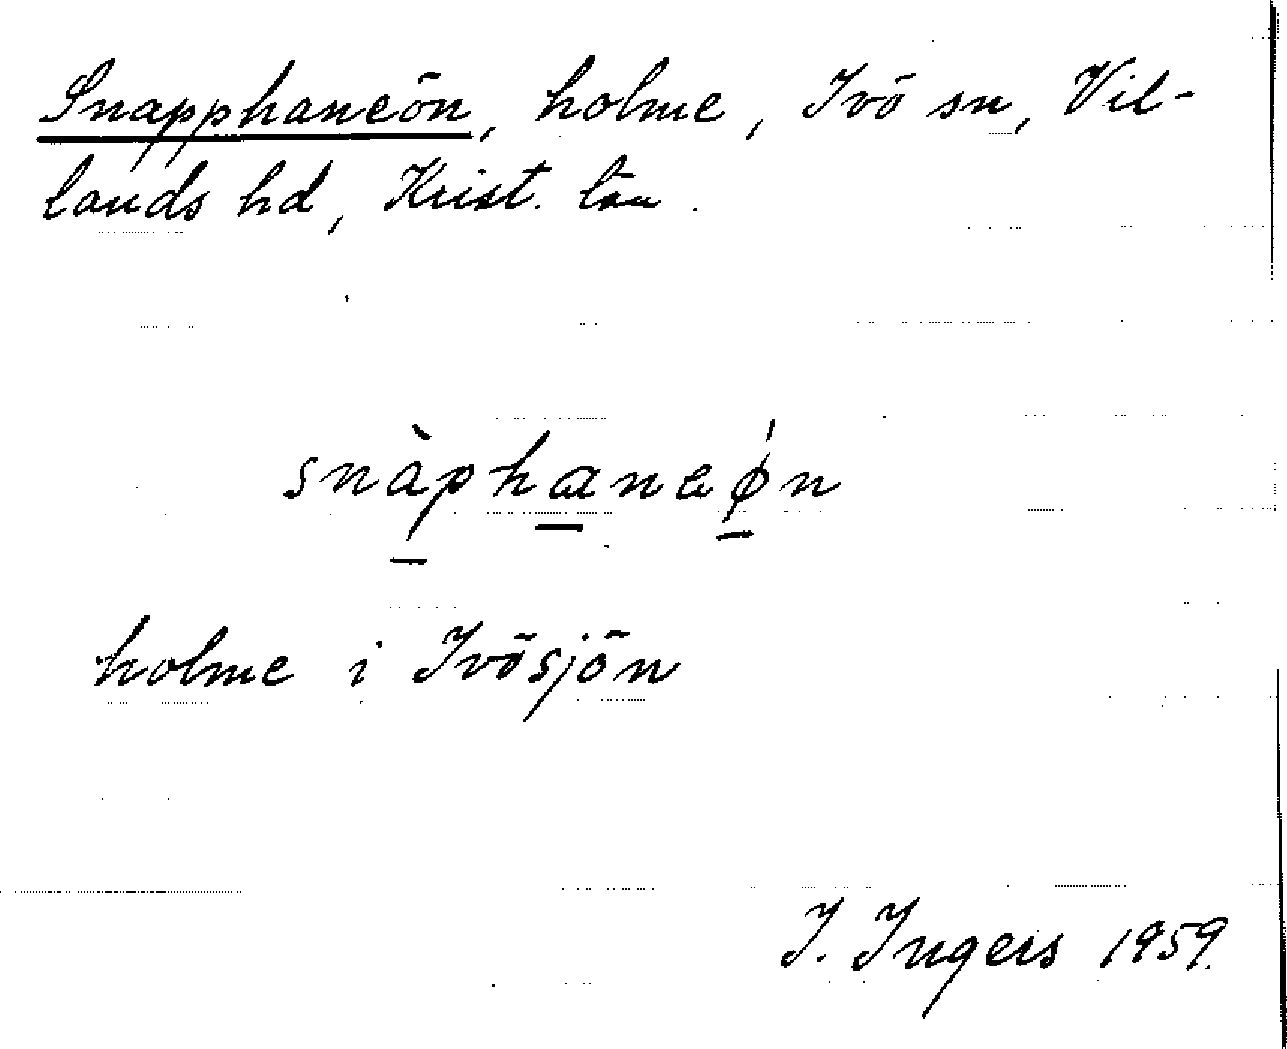 Snapphaneön, holme, Ivö sn, Vil-
lands hd, Krist. län.
snàphaneǿn
holme i Ivösjön
I. Ingers 1959.